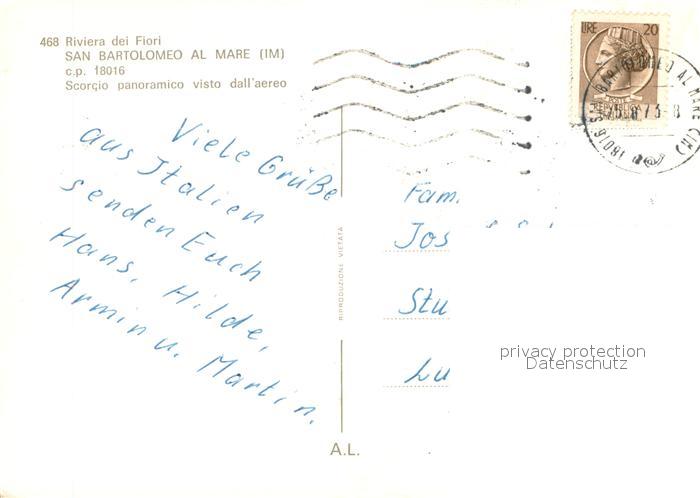 468 Riviera dei Fiori
SAN BARTOLOMEO AL MARE (IM)
c.p. 18016
Scorcio panoramico visto dall'aereo
Viele Grüße
aus Italien
senden Euch
Hans, Hilde,
Armin u. Martin.
RIPRODUZIONE VIETATA
A.L.
LIRE 20
18016 S. BARTOLOMEO AL MARE (IM)
Fam.
Jos
Stu
Lu
privacy protection
Datenschutz